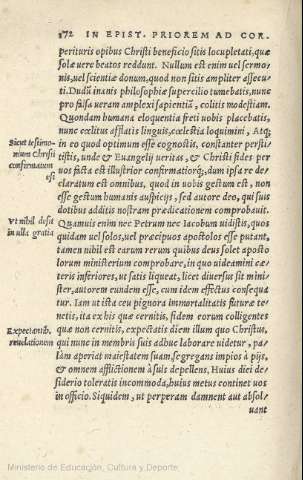 172 IN EPIST. PRIOREM AD COR.
perituris opibus Christi beneficio sitis locupletati, quæ
solæ uere beatos reddunt. Nullum est enim uel sermo-
nis, uel scientiæ donum, quod non sitis ampliter assecu-
ti. Dudū inanis philosophiæ supercilio tumebatis, nunc
pro falsa ueram amplexi sapientiā, colitis modestiam.
Quondam humana eloquentia freti uobis placebatis,
nunc cœlitus afflatis linguis, cœlestia loquimini, Atq;
Sicut testimo-
nium Christi
confirmatum
est
in eo quod optimum esse cognostis, constanter persti-
tistis, unde & Euangelij ueritas, & Christi fides per
uos facta est illustrior confirmatiorq;, dum ipsa re de-
claratum est omnibus, quod in uobis gestum est, non
esse gestum humanis auspicijs, sed autore deo, qui suis
dotibus additis nostram prædicationem comprobauit.
Vt nihil desit
in ulla gratia
Quamuis enim nec Petrum nec Iacobum uidistis, quos
quidam uel solos, uel præcipuos apostolos esse putant,
tamen nihil est earum rerum quibus deus solet aposto
lorum ministerium comprobare, in quo uideamini cæ-
teris inferiores, ut satis liqueat, licet diuersus sit mini-
ster, autorem eundem esse, cum idem effectus consequa
tur. Iam ut ista ceu pignora immortalitatis futuræ te-
netis, ita ex his quæ cernitis, fidem eorum colligentes
Expectantib.
reuelationem
quæ non cernitis, expectatis diem illum quo Christus,
qui nunc in membris suis adhuc laborare uidetur, pa-
làm aperiat maiestatem suam, segregans impios à pijs,
& omnem afflictionem à suis depellens. Huius diei de-
siderio toleratis incommoda, huius metus continet uos
in officio. Siquidem, ut perperam damnent aut absol-
uant
Ministerio de Educación, Cultura y Deporte